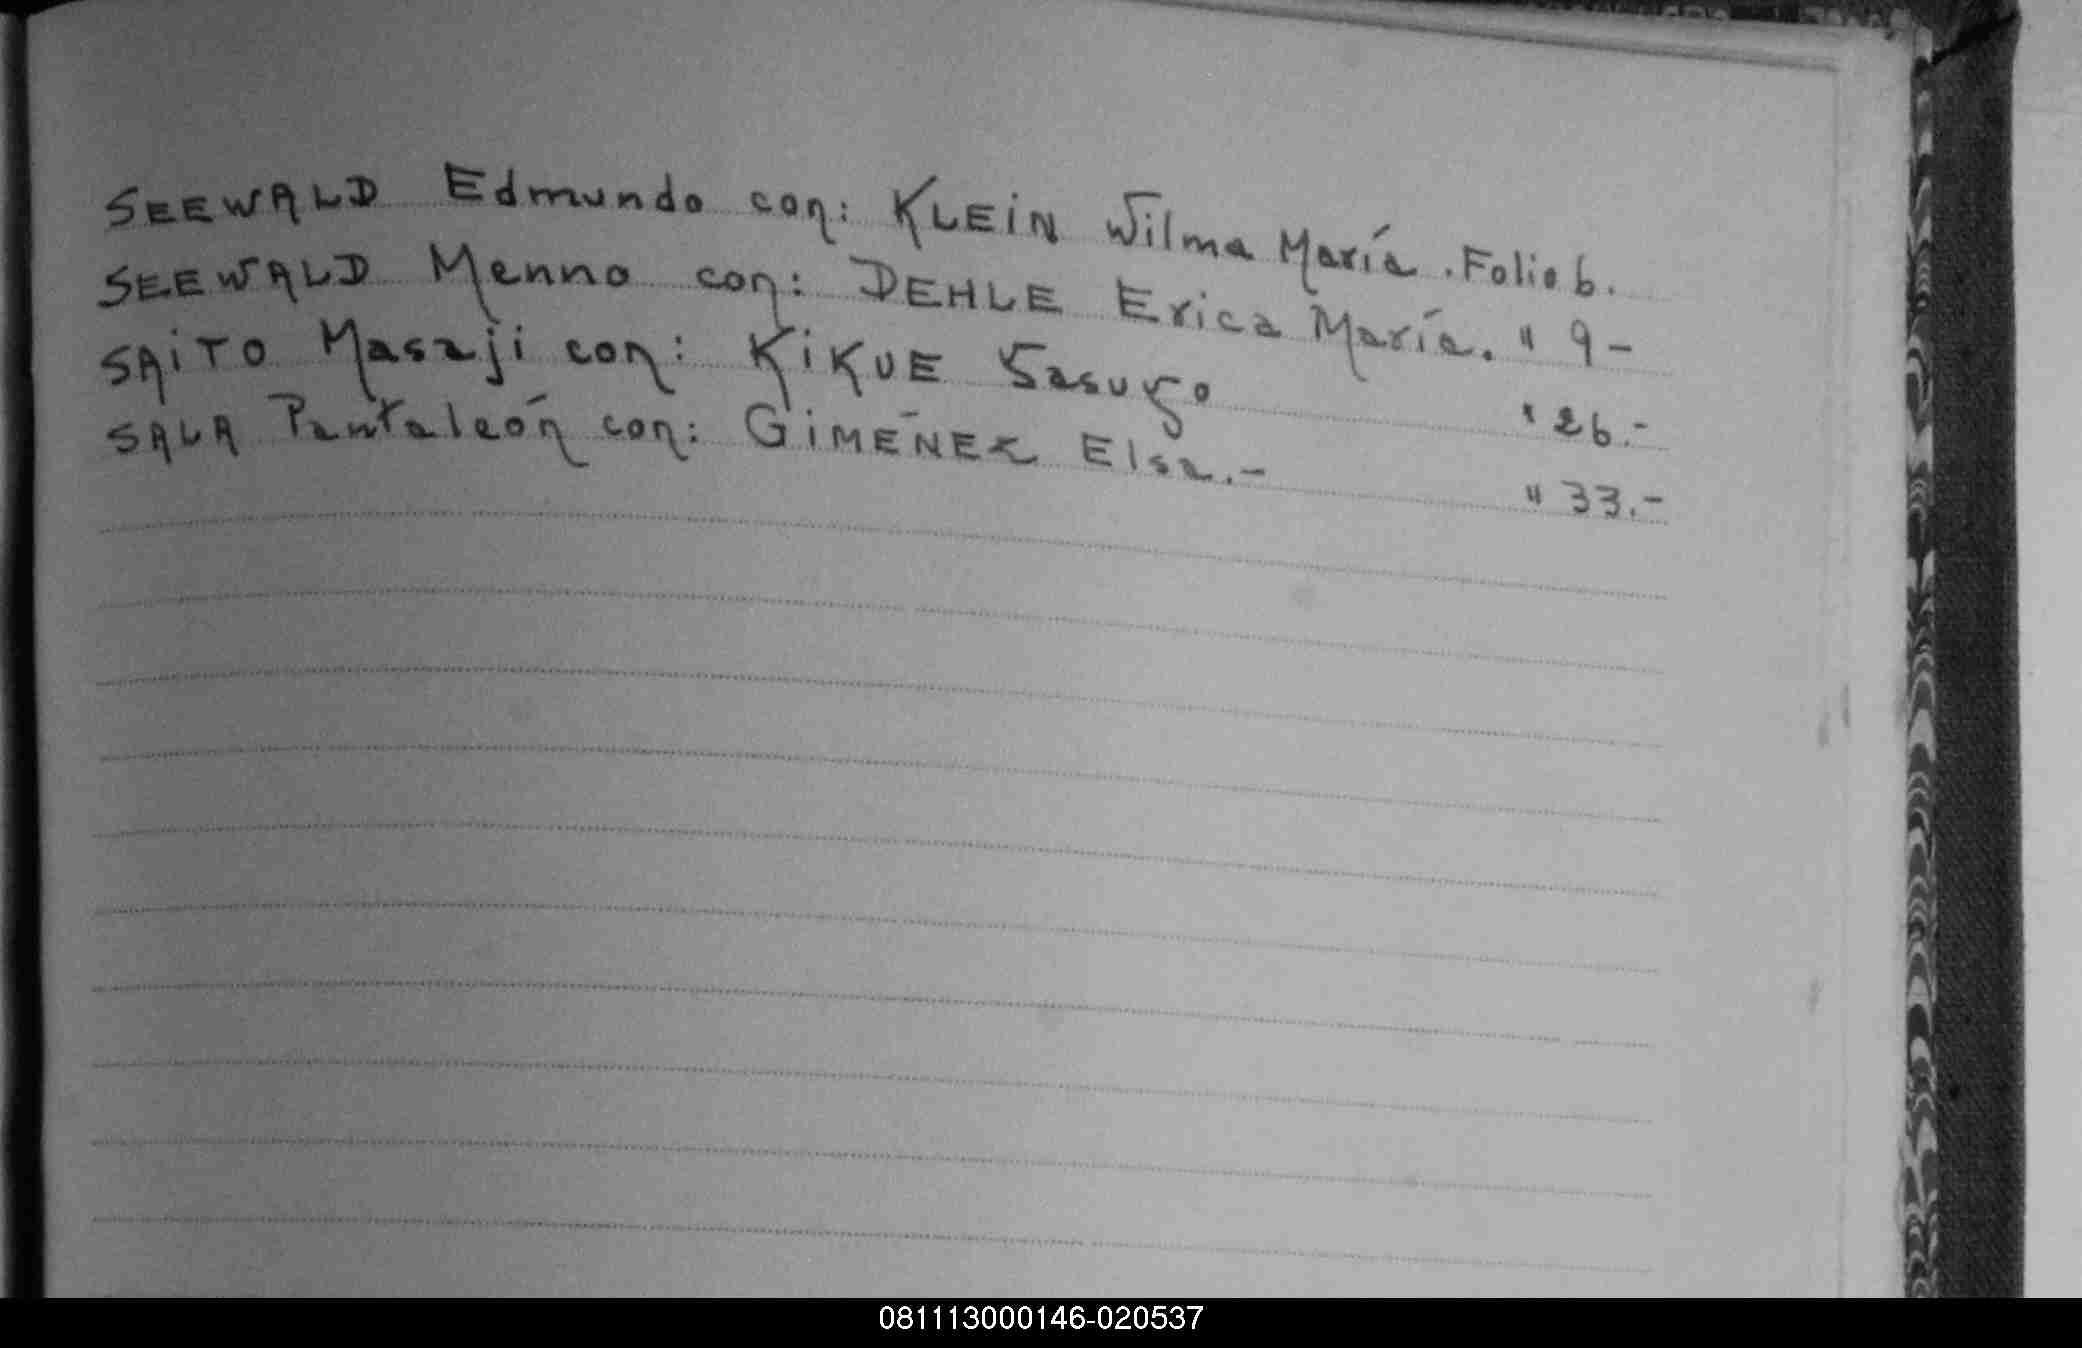 SEEWALD Edmundo con: KLEiN Wilma María. Folio 6.
SEEWALD Menno con: DEHLE Erica María. " 9-
SAiTO Masaji con: KiKUE " 26.-
SALA Pantaleón con: GiMÉNEZ Elsa.- " 33.-
081113000146-020537